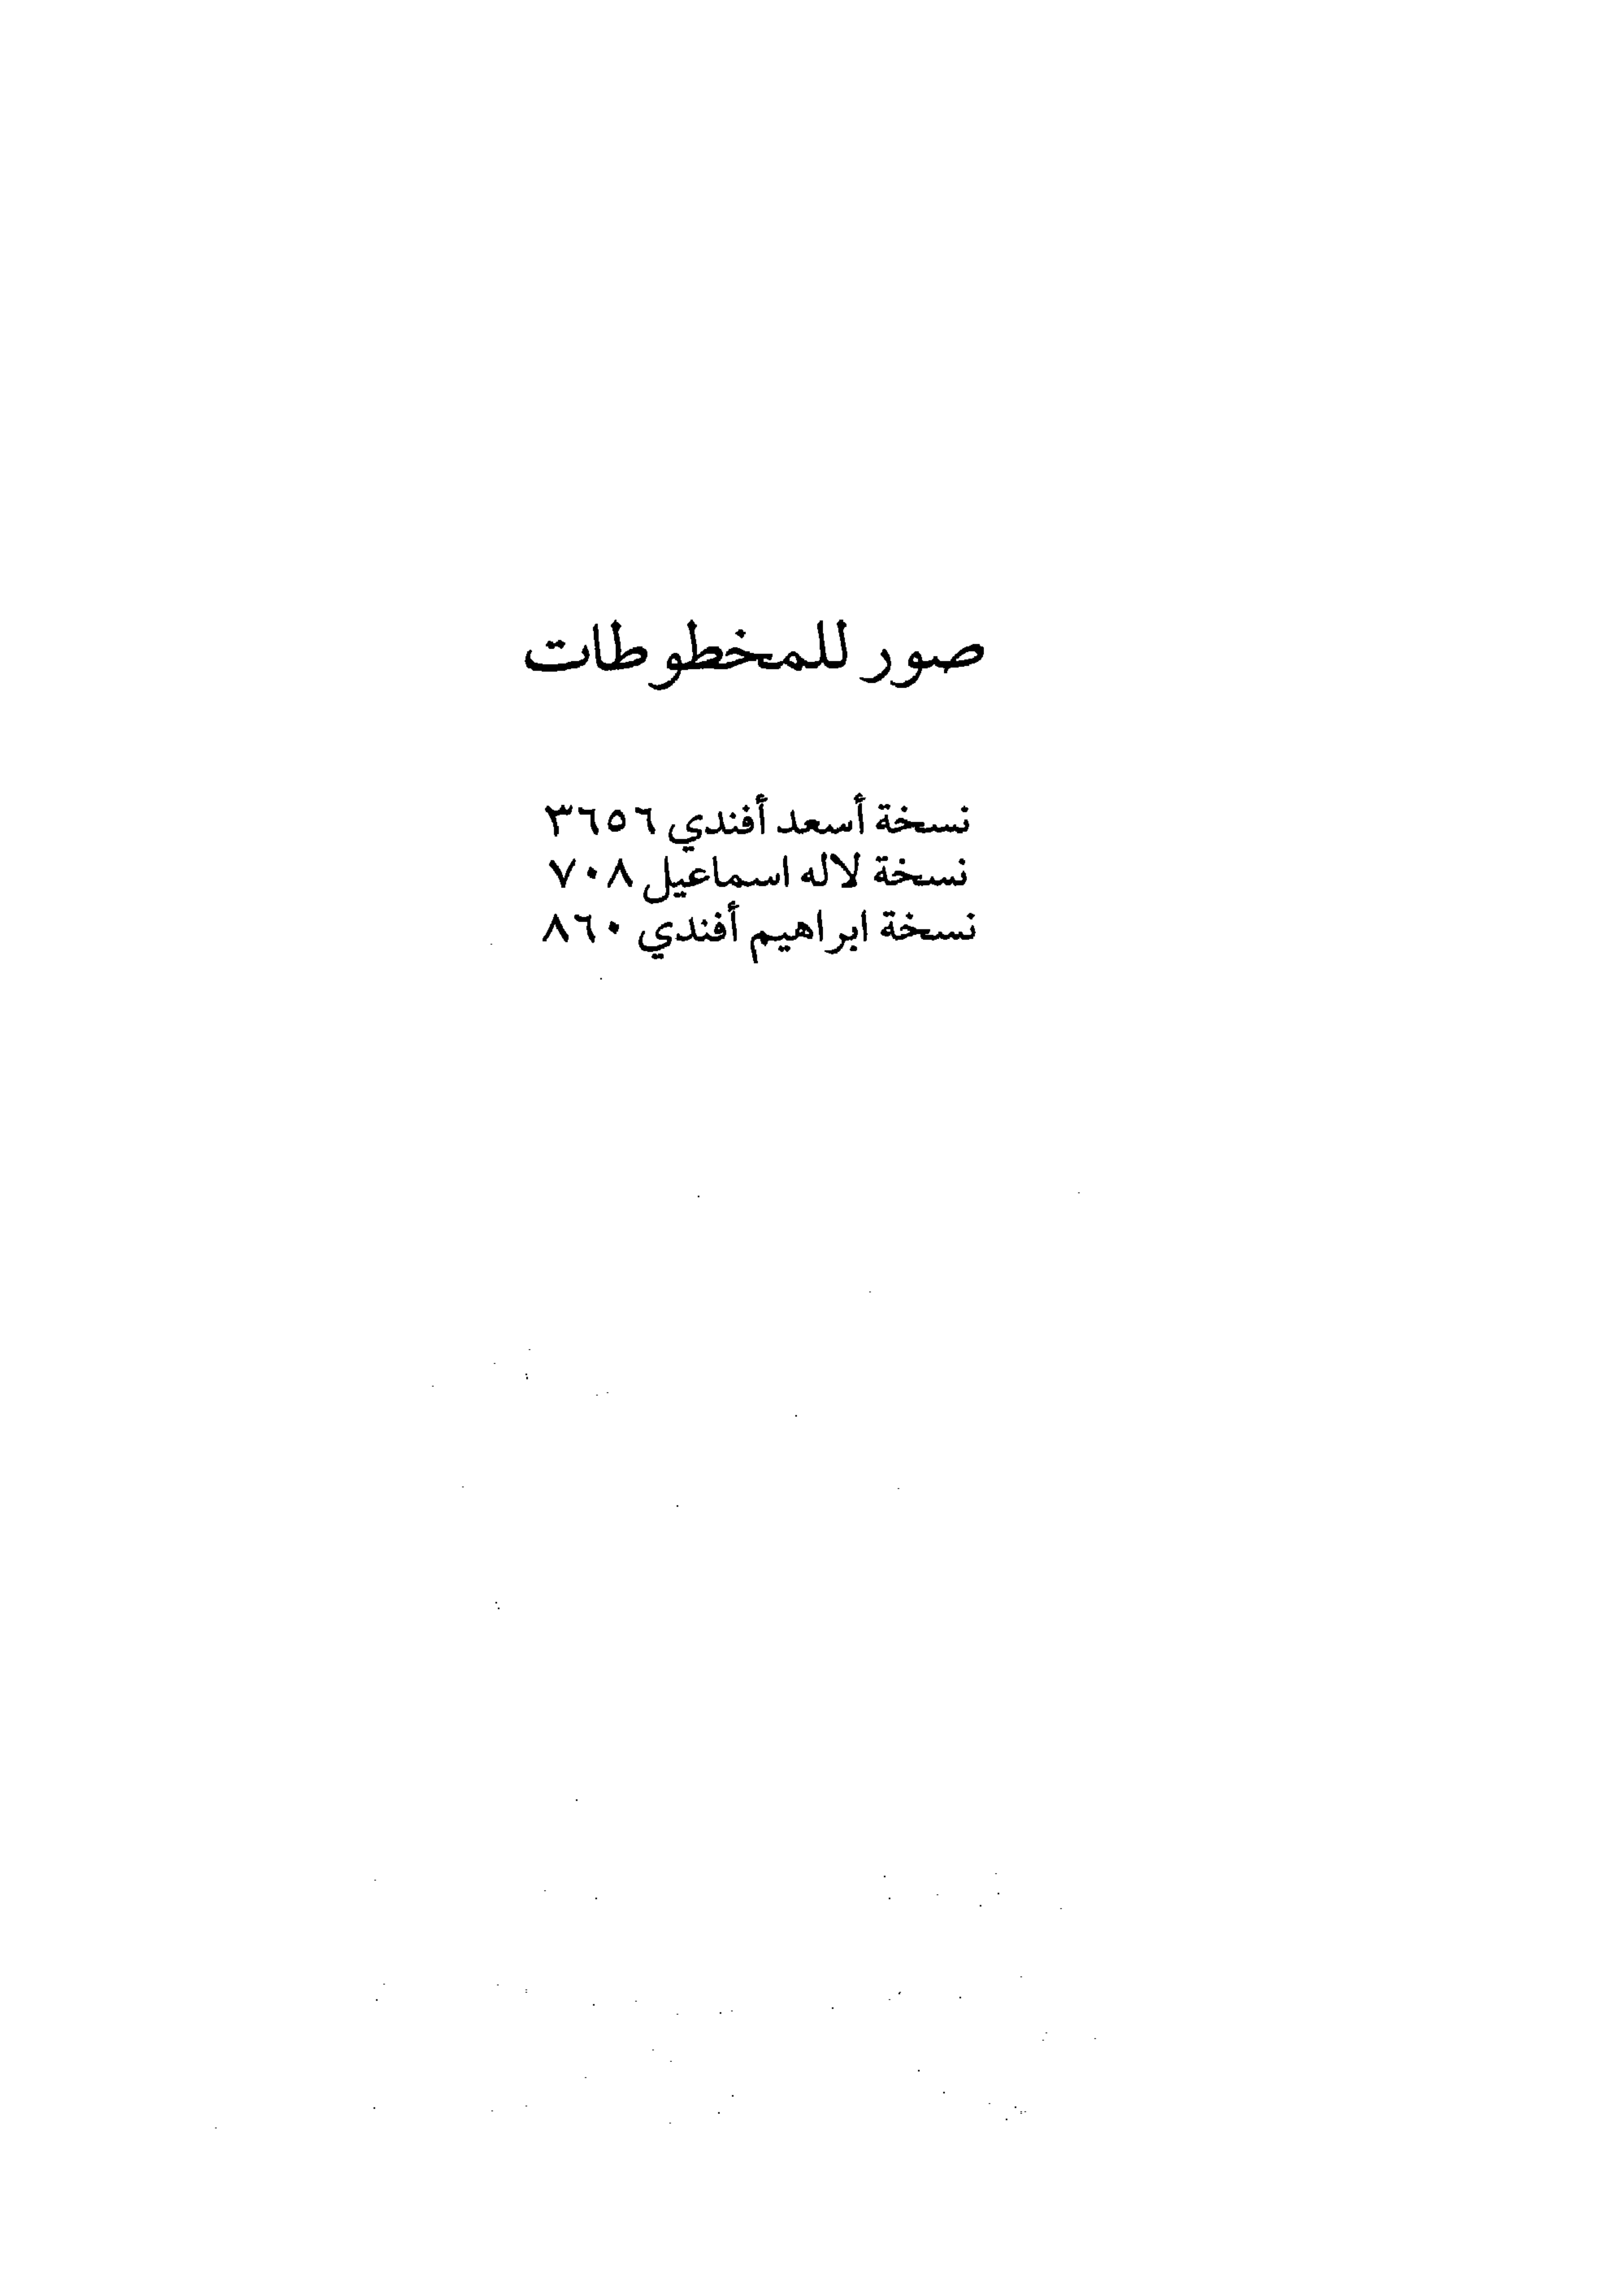 صور للمخطوطات
نسخة أسعد أفندي ٣٦٥٦
نسخة لاله اسماعيل ٧٠٨
نسخة ابراهيم أفندي ٨٦٠